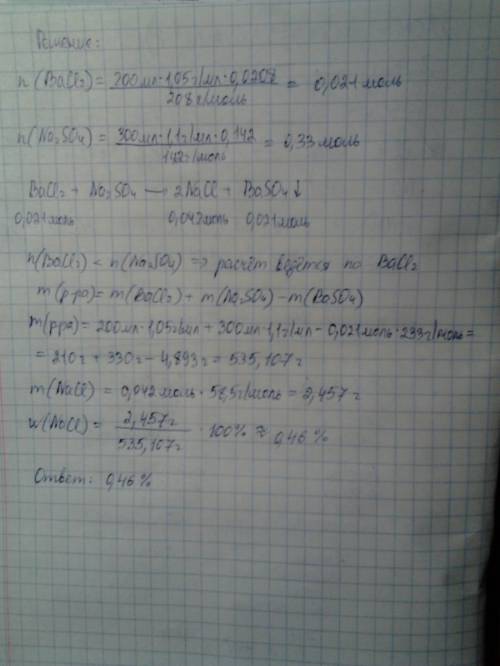 Решение:
n(BaCl₂) = 200мл·1,05г/мл·0,0208 / 208г/моль = 0,021 моль
n(Na₂SO₄) = 300мл·1,1г/мл·0,142 / 142г/моль = 0,33 моль
BaCl₂ + Na₂SO₄ → 2NaCl + BaSO₄↓
0,021 моль 0,042 моль 0,021 моль
n(BaCl₂) < n(Na₂SO₄) ⇒ расчёт ведётся по BaCl₂
m(р-ра) = m(BaCl₂) + m(Na₂SO₄) - m(BaSO₄)
m(р-ра) = 200мл·1,05г/мл + 300мл·1,1г/мл - 0,021моль·233г/моль =
= 210г + 330г - 4,893г = 535,107г
m(NaCl) = 0,042моль·58,5г/моль = 2,457г
w(NaCl) = 2,457г / 535,107г · 100% ≈ 0,46%
Ответ: 0,46%